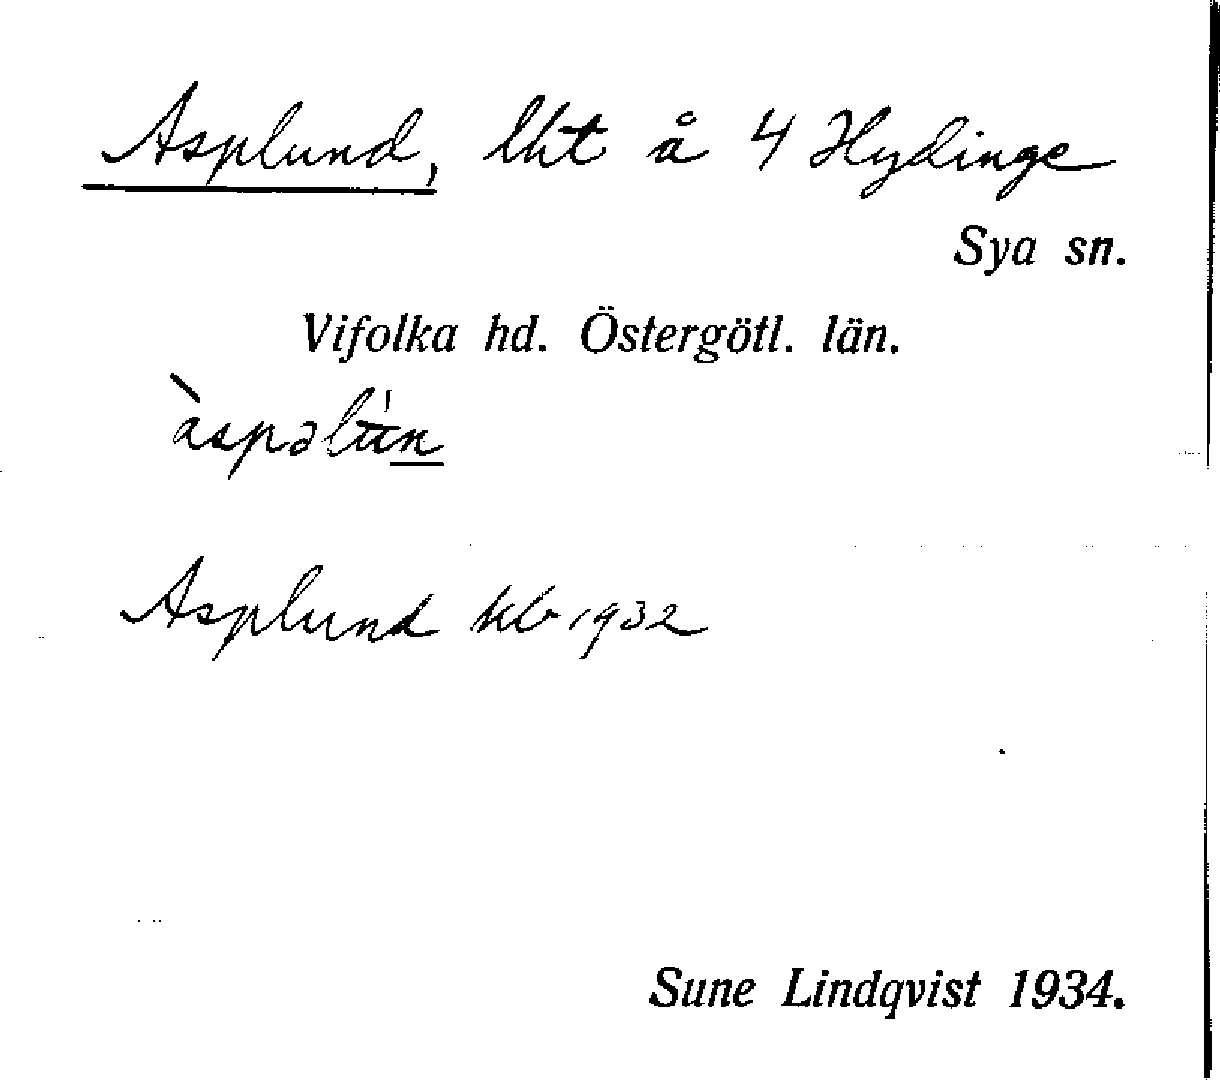 Asplund, lht å 4 Hydinge
Sya sn.
Vifolka hd. Östergötl. län.
àspəlún
Asplund kb 1932
Sune Lindqvist 1934.